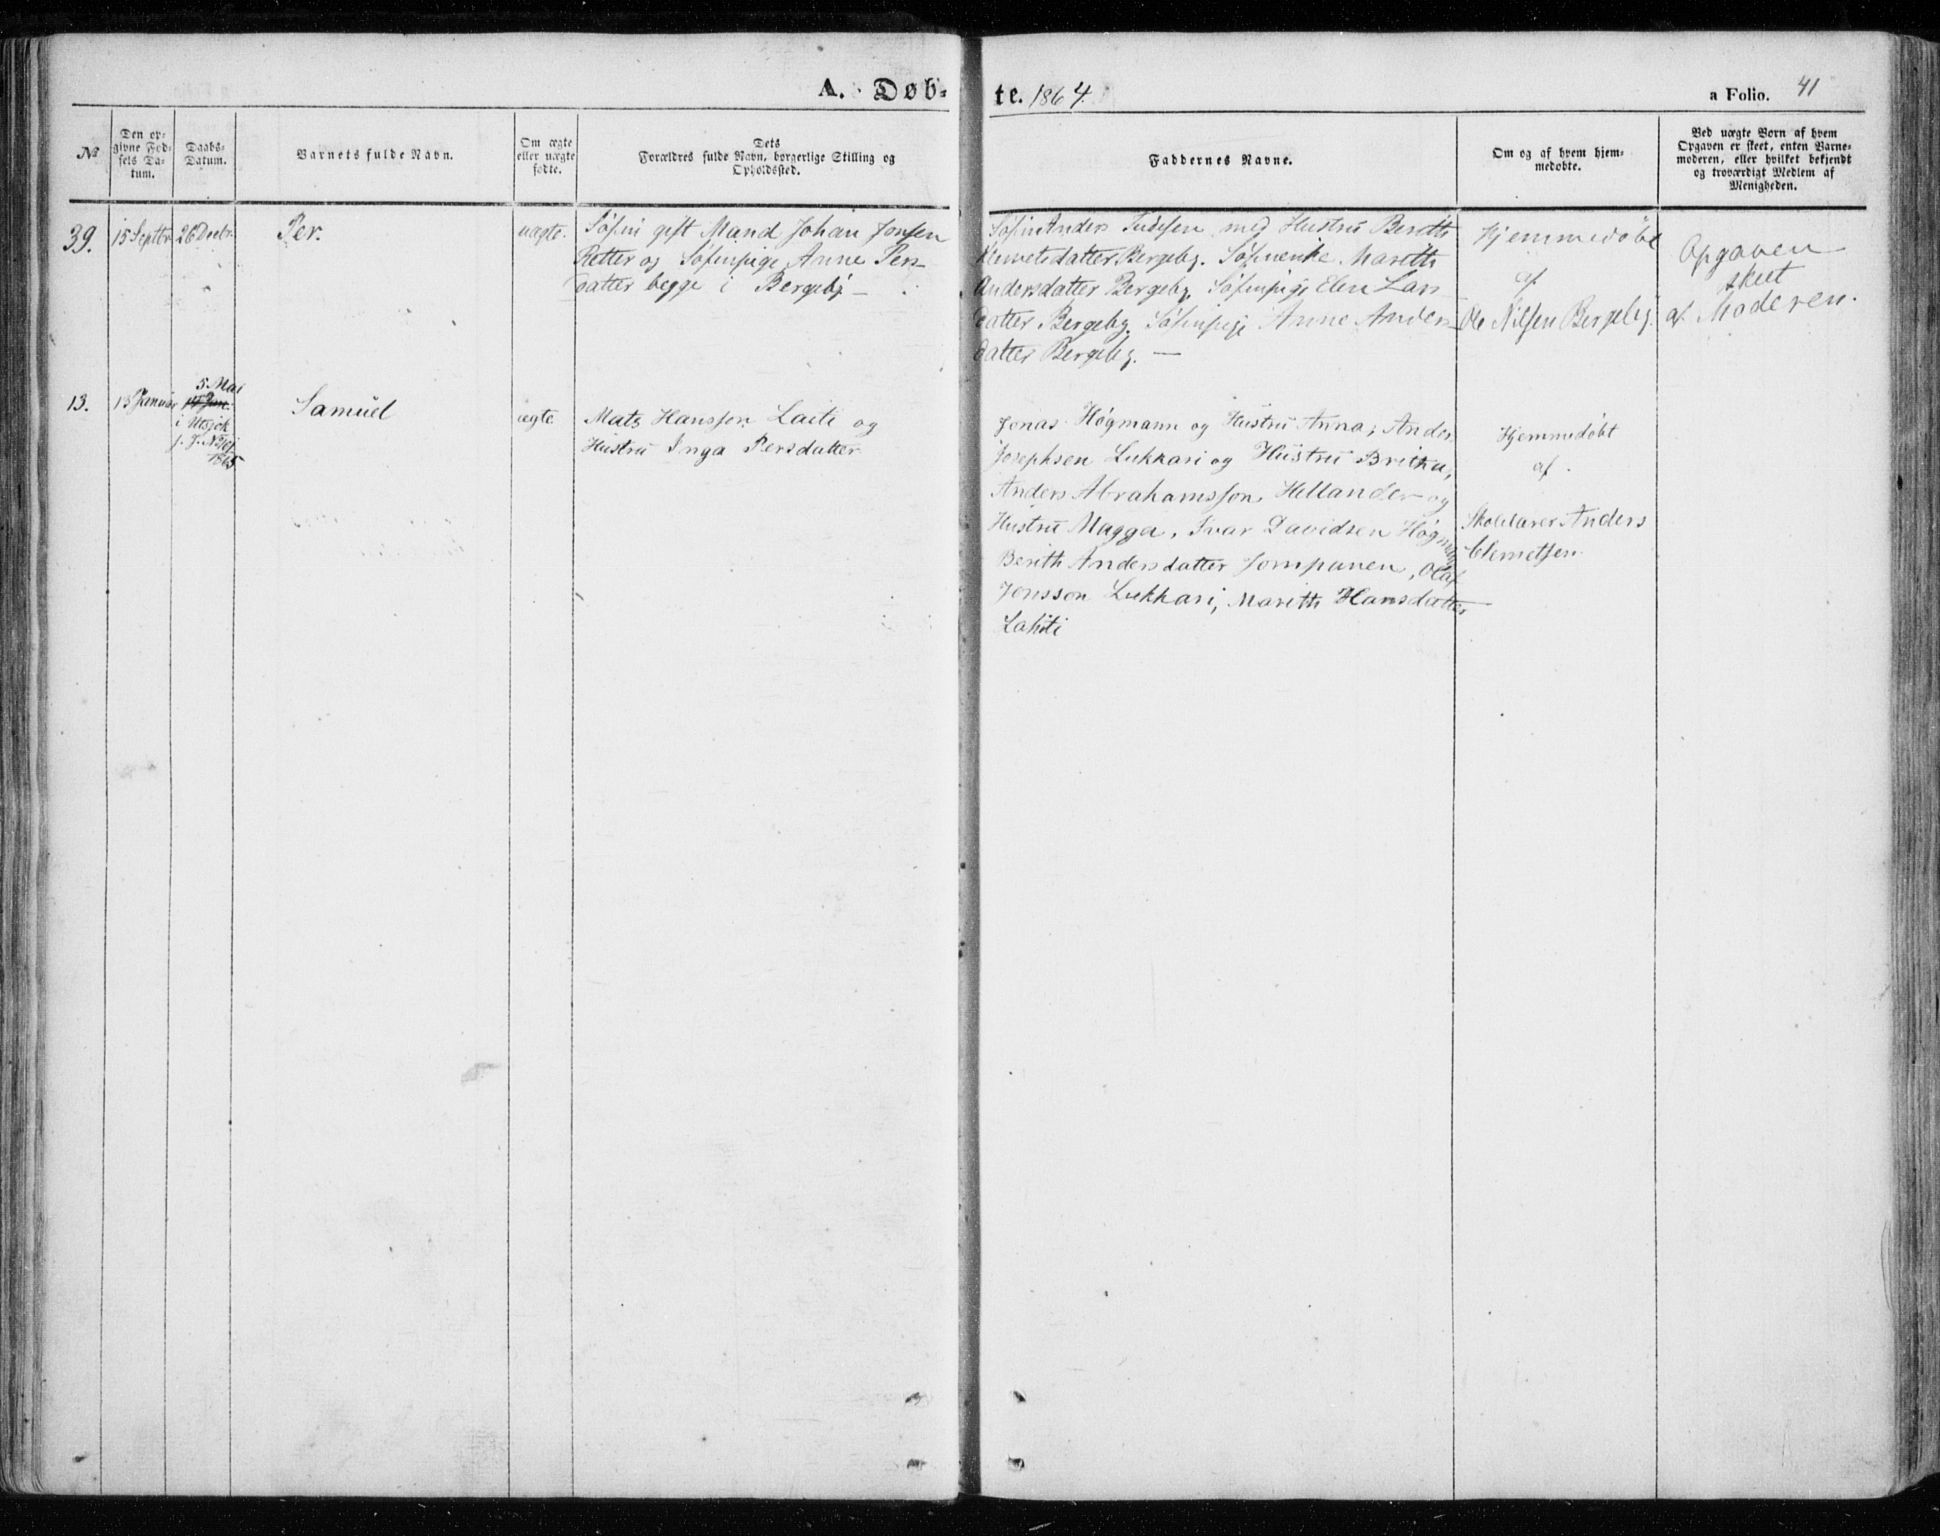 A. Døb-
te. 1864.
a Folio. 41
No
Den op-
givne Fød-
sels Da-
tum.
Daabs-
Datum.
Barnets fulde Navn.
Om ægte
eller uægte
fødte.
Dets
Forældres fulde Navn, borgerlige Stilling og
Opholdssted.
Faddernes Navne.
Om og af hvem hjem-
medøbte.
Ved uægte Børn af hvem
Opgaven er skeet, enten Barne-
moderen, eller hvilket bekjendt
og troværdigt Medlem af
Menigheden.
39.
15 Septbr.
26 Decbr.
Per.
uægte.
Søfin gift Mand Johan Jonsen
Retter og Søfinpige Anne Pers-
datter begge i Bergeby —
Søfin Anders med Hustru Berith
Klemetsdatter Bergeby. Søfinenke Marith
Andersdatter Bergeby, Søfinpige Elen Lars
datter Bergeby. Søfinpige Anne Anders-
datter Bergeby. —
Hjemmedøbt
af
Ole Nilsen Bergeby.
Opgaven
skeet
af Moderen.
13.
13 Januar
5 Mai
14 Jan.
i Utsjok
1865
Samuel
ægte
Mats Hansson Laiti og
Hustru Inga Persdatter
Jonas Høgmann og Hustru Anna, Anders
Josephsen Lukkari og Hustru Britha,
Anders Abrahamsson Hellander og
Hustru Magga, Ivar Davidsen Høgman
Berith Andersdatter Jompanen, Olaf
Jonsson Lukkari, Marith Hansdatter
Lahiti
Hjemmedøbt
af
Skolelærer Anders
Clemetsen